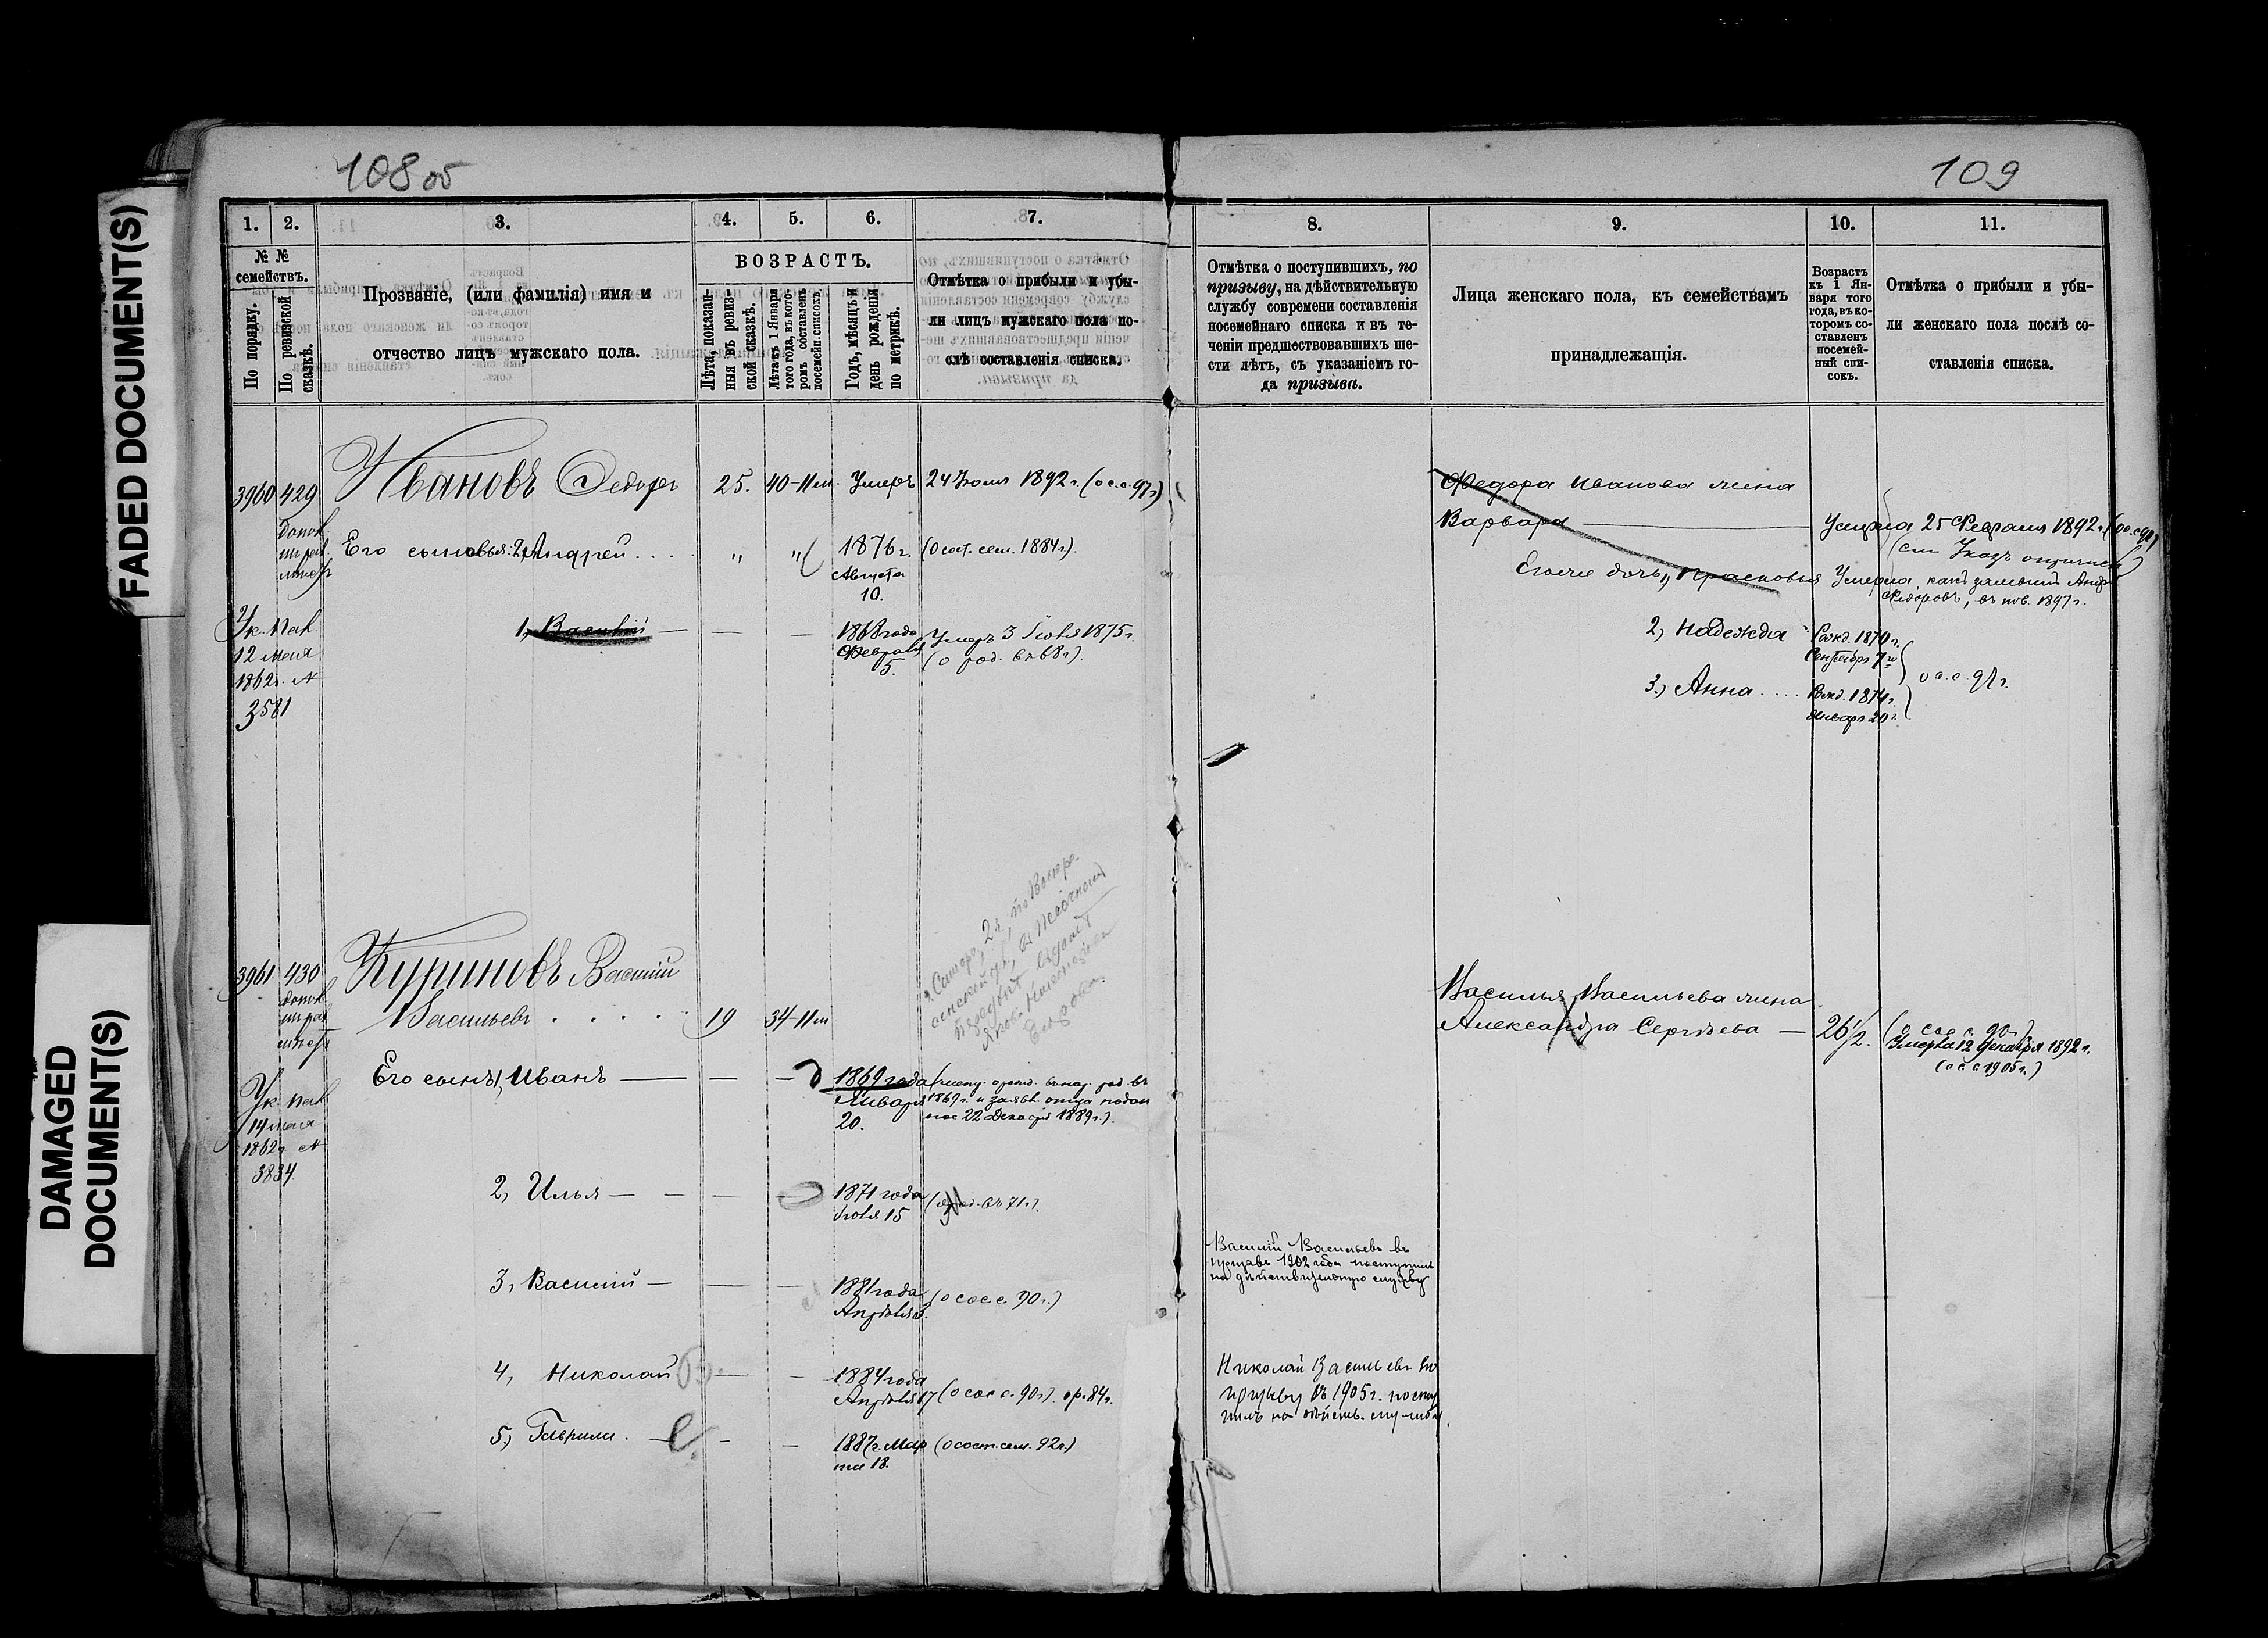 FADED DOCUMENT(S)
DAMAGED
DOCUMENT(S)
108 об
109
1.
2.
3.
4.
5.
6.
7.
№ №
семействъ.
По порядку.
По ревизской
сказкѣ.
Прозваніе, (или фамилія) имя и
отчество лицъ мужскаго пола.
ВОЗРАСТЪ.
Лѣта, показан-
ныя въ ревиз-
ской сказкѣ.
Лѣта къ 1 Января
того года, въ кото-
ромъ составленъ
посемейн. списокъ.
Годъ, мѣсяцъ и
день рожденія
по метрикѣ.
Отмѣтка о прибыли и убы-
ли лицъ мужскаго пола по-
слѣ составленія списка.
8.
9.
10.
11.
Отмѣтка о поступившихъ, по
призыву, на дѣйствительную
службу современи составленія
посемейнаго списка и въ те-
ченіи предшествовавшихъ ше-
сти лѣтъ, съ указаніемъ го-
да призыва.
Лица женскаго пола, къ семействамъ
принадлежащія.
Возрастъ
къ 1 Ян-
варя того
года, въ ко-
торомъ со-
ставленъ
посемей-
ный спи-
сокъ.
Отмѣтка о прибыли и убы-
ли женскаго пола послѣ со-
ставленія списка.
3960 429 Ивановъ Федоръ 25. 40-11 м. Умеръ 24 Іюля 1892 г. (о с. с. 97 г.)
Его сыновья: 2, Андрей 1876 г. (О сост. сем. 1884 г.)
Августа
10.
Ук. Пал.
12 мая
1862 г. №
3581
1, Василій — — — 1868 года Умеръ 3 Іюля 1875 г.
Февраля (о род. въ 68 г.)
5.
Федора Иванова жена
Варвара — Умерла 25 Февраля 1892 г.
дочь 1, Прасковья Умерла, какъ
Федоровъ, въ 1897 г.
2, Надежда Рожд. 1870 г.
Сентября 7 го
3, Анна Рожд. 1874 г. о с. с. 97 г.
Января 20 г.
3961 430 Куриновъ Василій
Васильевъ 19 34-11 м
Его сынъ 1, Иванъ — — — 1869 года
Января 1869 г. и заявл. отца подан
20. ное 22 Декабря 1889 г.)
Ук. Пал.
14 мая
1862 г. №
3834
2, Илья — — — 1871 года (о род. въ 71 г.)
Іюля 15
3, Василій — — — 1881 года (о сос. с. 90 г.)
Апрѣля 3.
4, Николай — — 1884 года
Апрѣля 17 (о сос. с. 90 г.) 84 г.
5, Гаврила. — — 1887 г. Мар (о сост. сем. 92 г.)
та 13.
Василья Васильева жена
Александра Сергѣева — 26 1/2. (о сос. с. 90 г.)
Умерла 12 Декабря 1892 г.
(о с. с. 1905 г.)
Василій Васильевъ въ
призывъ 1902 года поступилъ
на дѣйствительную службу
Николай Васильевъ по
призыву въ 1905 г. посту
пилъ на дѣйств. службу.